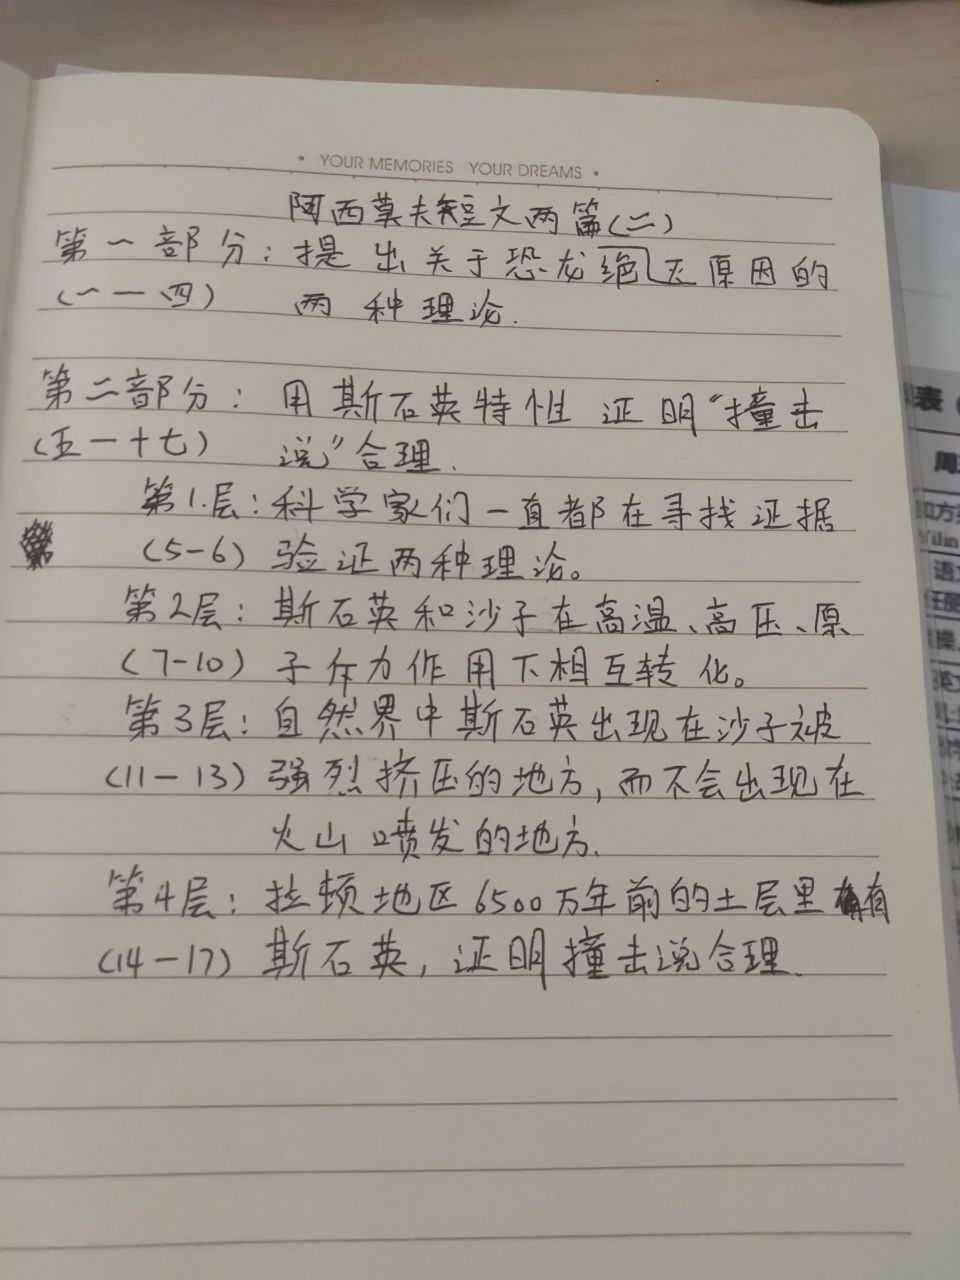 • YOUR MEMORIES YOUR DREAMS •
阿西莫夫短文两篇(二)
第一部分：提出关于恐龙绝灭原因的
(一一四) 两种理论.
第二部分：用斯石英特性证明“撞击
(五一十七) 说”合理.
第1.层：科学家们一直都在寻找证据
(5-6) 验证两种理论。
第2层：斯石英和沙子在高温、高压、原
(7-10) 子斥力作用下相互转化。
第3层：自然界中斯石英出现在沙子被
(11-13) 强烈挤压的地方，而不会出现在
火山喷发的地方.
第4层：拉顿地区6500万年前的土层里有
(14-17) 斯石英，证明撞击说合理.
表
周
方
语
英